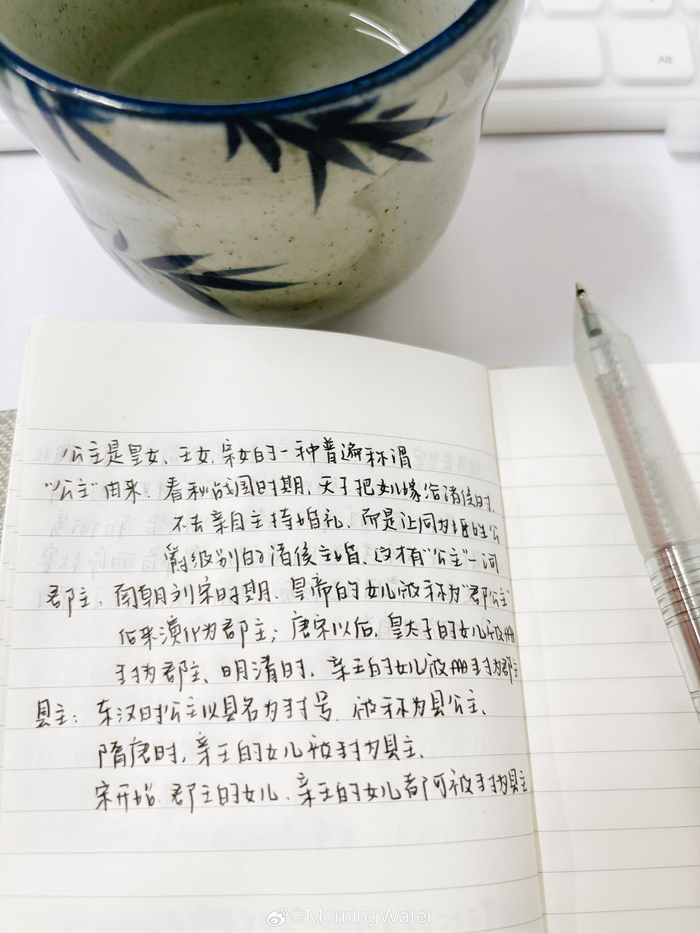 Alt
公主是皇女、王女、宗女的一种普遍称谓
"公主"由来：春秋战国时期，天子把女儿嫁给诸侯时，
不去亲自主持婚礼，而是让同为姬姓公
爵级别的诸侯主婚，这才有"公主"一词
郡主：南朝刘宋时期，皇帝的女儿被称为"郡公主"
后来演化为郡主；唐宋以后，皇太子的女儿被册
封为郡主、明清时，亲王的女儿被册封为郡主
县主：东汉时公主以县名为封号，被称为县公主、
隋唐时，亲王的女儿被封为县主、
宋开始，郡主的女儿、亲王的女儿都可被封为县主
@MorningWater